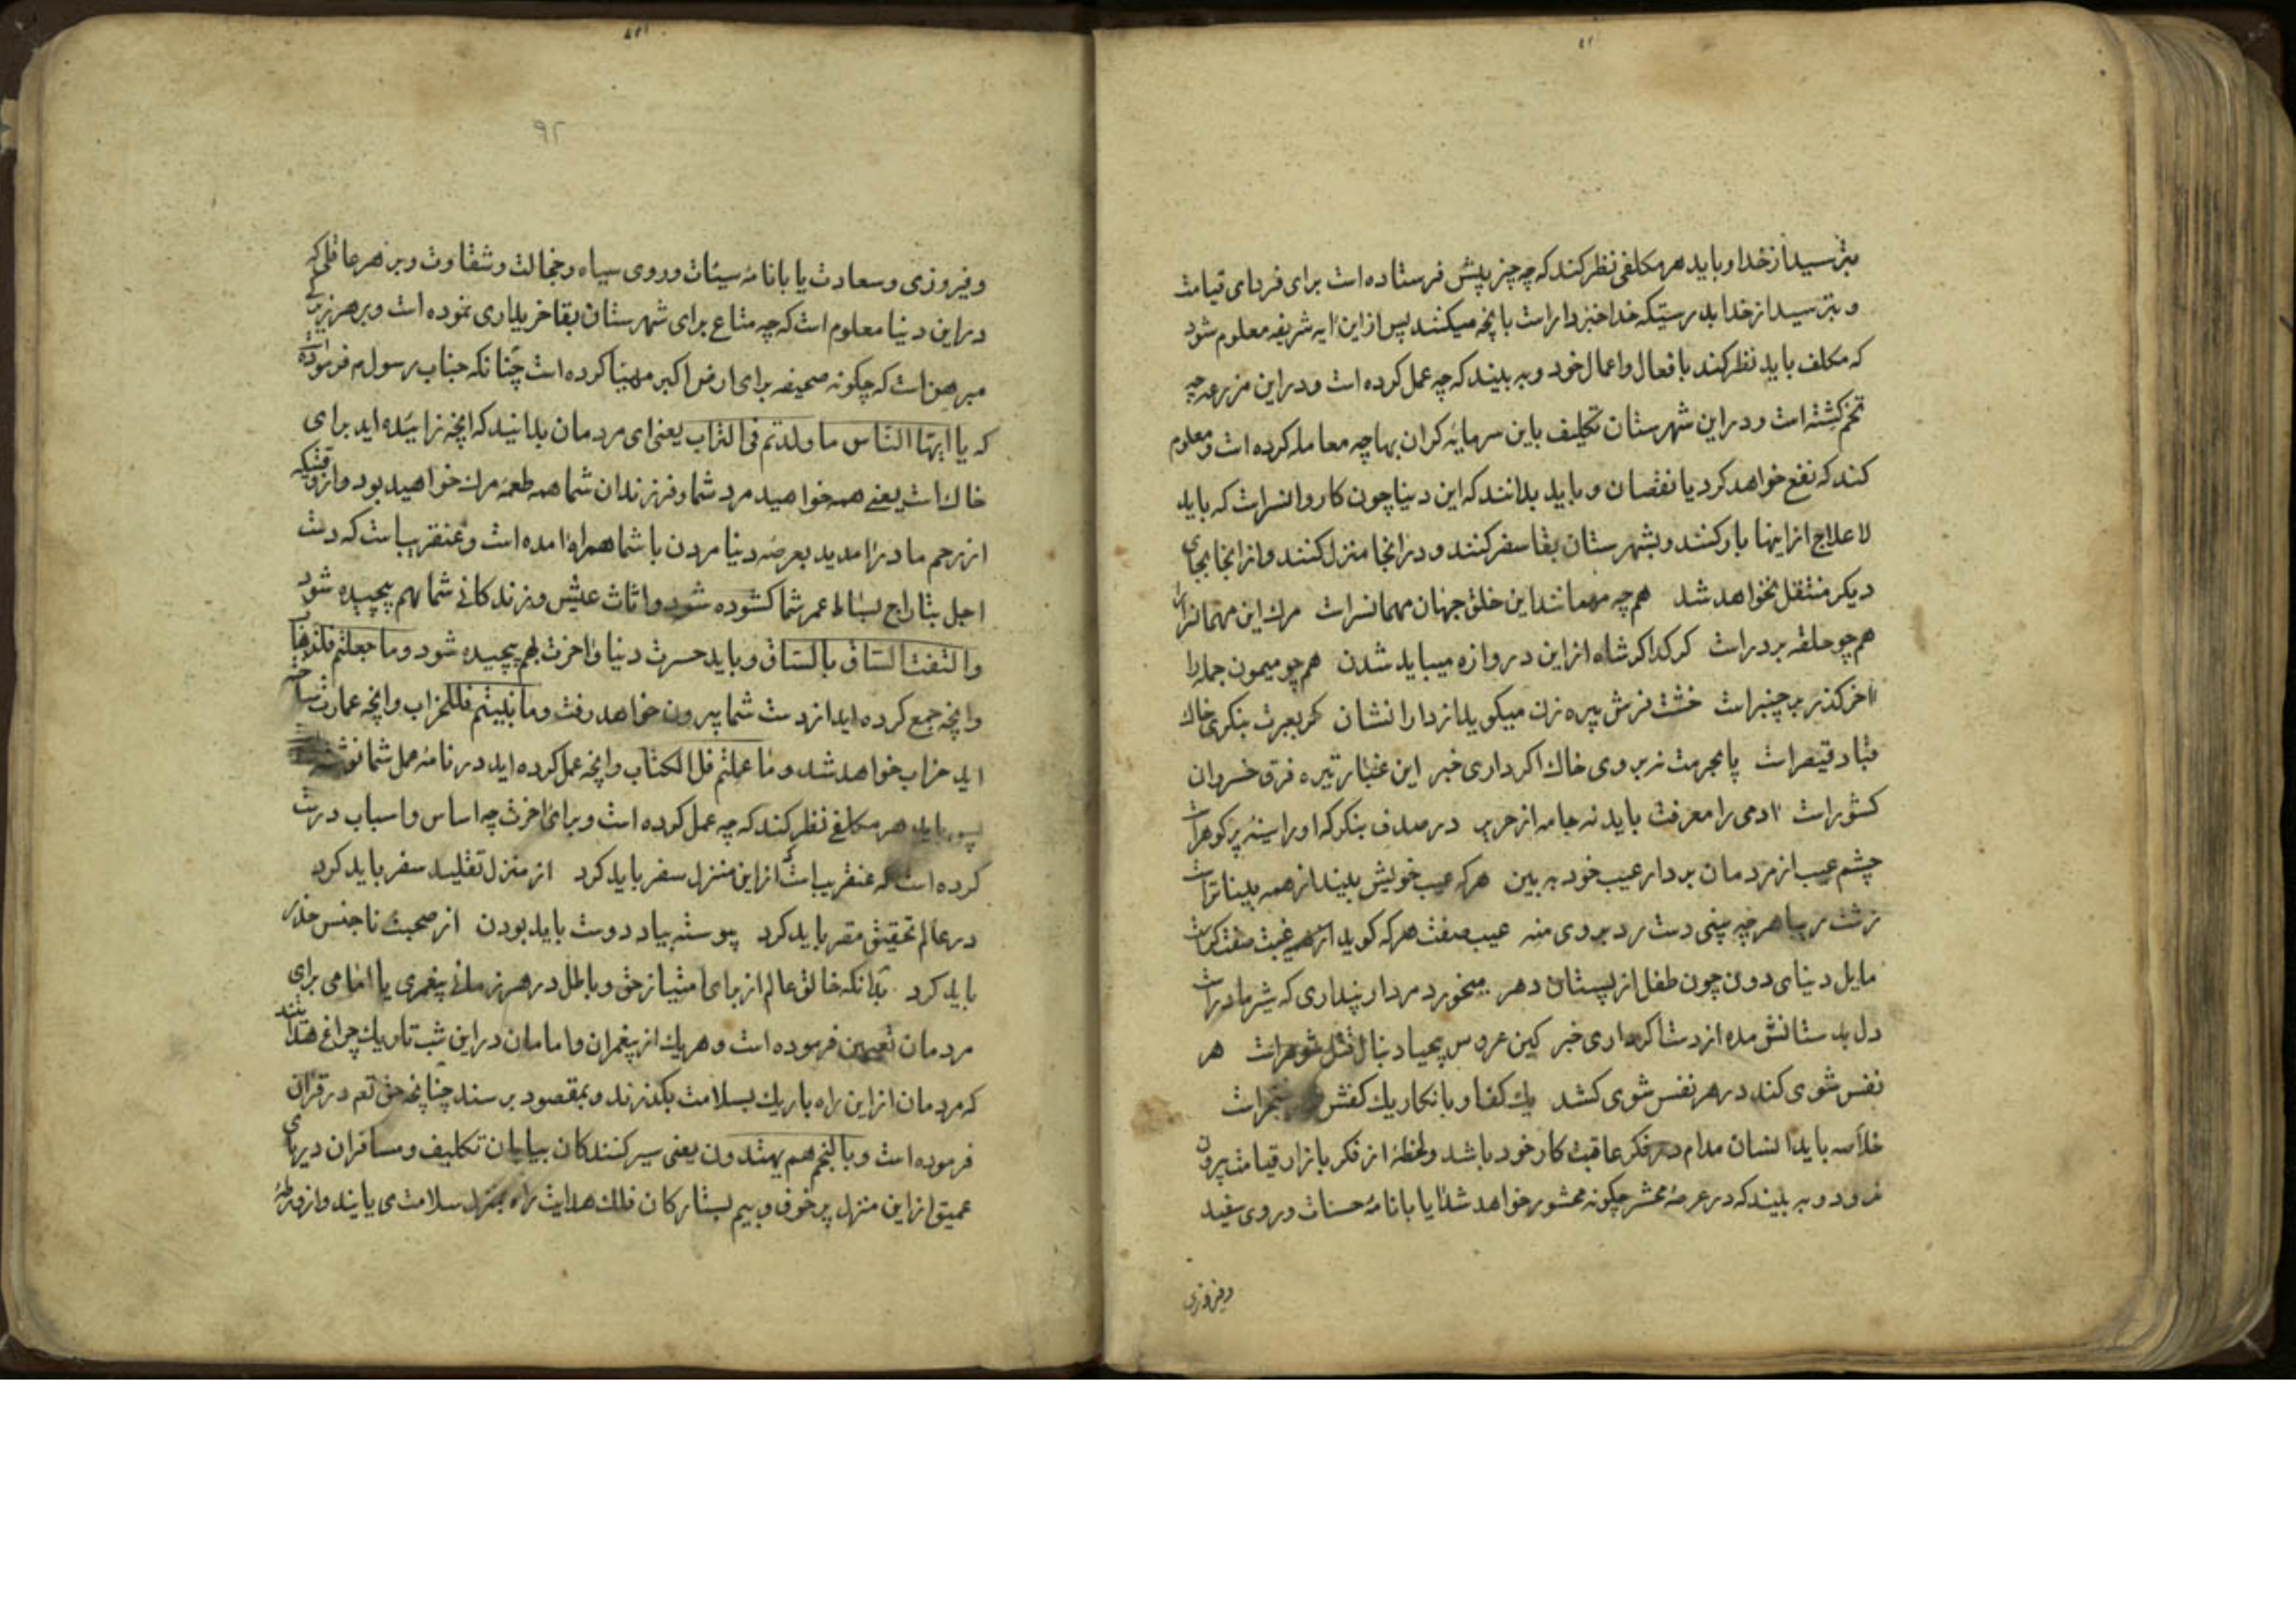 بترسید از خدا و باید هر مکلفی نظر کند که چه چیز پیش فرستاده است برای فردای قیامت
و بترسید از خدا بدرستیکه خدا خبردار است بانچه میکنید پس از این ایه شریفه معلوم شود
که مکلف باید نظر کند بافعال و اعمال خود و به بیند که چه عمل کرده است و در این مزرعه چه
تخم کشته است و در این شهرستان تکلیف باین سرمایه کران بها چه معامله کرده است و معلوم
کند که نفع خواهد کرد یا نقصان و باید بدانند که این دنیا چون کاروانسراست که باید
لاعلاج از اینها بار کنند و بشهرستان بقا سفر کنند و در انجا منزل کنند و از انجا بجای
دیکر منتقل نخواهد شد هم چه مهمانند این خلق جهان مهمانسراست مرك این مهمانسرا را
هم چو حلقه بر در است کر کدا کر شاه از این دروازه میباید شدن هم چو میمون جمله را
اخر کذر بر چنبر است خشت فرش پیره زن میکوید از دارا نشان کر بعبرت بنکری خاك
قباد قیصر است پا بحرمت نه بروی خاك اکر داری خبر این غبار تیره فرق خسروان
کشور است ادمی را معرفت باید نه جامه از حریر در صدف بنکر که او را سینه پر کوهر است
چشم عیب از مردمان بردار عیب خود به بین هر که عیب خویش بیند از همه بیناتر است
زشت زیبا هر چه بینی دست رد بروی منه عیب صنعت هر که کوید
مایل دنیای دون چون طفل از پستان دهر میخورد مردار پنداری که شیر مادر است
دل بدستانش مده از دست اکر داری خبر کین عروس بیحیا دنبال قتل شوهر است هر
نفس شوی کند در هر نفس شوی کشد یك کف او با نکار یك کفش خنجر است
خلاصه باید انسان مدام در فکر عاقبت کار خود باشد و لحظهٔ از فکر بازار قیامت بیرون
نرود و به بیند که در عرصهٔ محشر چکونه محشور خواهد شد ایا با نامهٔ حسنات و روی سفید
و فیروزی
۹۲
و فیروزی و سعادت یا با نامهٔ سیئات و روی سیاه و خجالت و شقاوت و بر هر عاقلی که
در این دنیا معلوم است که چه متاع برای شهرستان بقا خریداری نموده است و بر هر زیرکی
مبرهن است که چکونه صحیفه برای ارض اکبر مهیا کرده است چنانکه جناب رسول م فرموده است
که یا ایها الناس ما ولدتم فی التراب یعنی ای مردمان بدانید که انچه زائیده اید برای
خاك است یعنی همه خواهید مرد شما و فرزندان شما همه طعمهٔ مرك خواهید بود و از وقتیکه
از رحم مادر امدید بعرصهٔ دنیا مردن با شما همراه امده است و عنقریب است که دست
اجل بتاراج بساط عمر شما کشوده شود و اثاث عیش و زندکانی شما بهم پیچیده شود
و التفت الساق بالساق و باید حسرت دنیا و اخرت بهم پیچیده شود و ما جعلتم فلذهاب
و انچه جمع کرده اید از دست شما بیرون خواهد رفت و ما بنیتم فللخراب و انچه عمارت ساخته
اید خراب خواهد شد و ما عملتم فل الکتاب و انچه عمل کرده اید در نامهٔ عمل شما نوشته
پس باید هر مکلفی نظر کند که چه عمل کرده است و برای اخرت چه اساس و اسباب درست
کرده است که عنقریب است که از این منزل سفر باید کرد از منزل تقلید سفر باید کرد
در عالم تحقیق مقر باید کرد پیوسته بیاد دوست باید بودن از صحبت ناجنس حذر
باید کرد بدانکه خالق عالم از برای امتیاز حق و باطل در هر زمانی پیغمبری یا امامی برای
مردمان تعیین فرموده است و هر یك از پیغمبران و امامان در این شب تاریك چراغ هدایتند
که مردمان از این راه باریك بسلامت بکذرند و بمقصود برسند چنانچه حق تعم در قران
فرموده است و بالنجم هم یهتدون یعنی سیر کنندکان بیابان تکلیف و مسافران دریای
عمیق از این منزل پر خوف و بیم بستارکان فلك هدایت راه بمنزل سلامت می یابند و از ورطهٔ